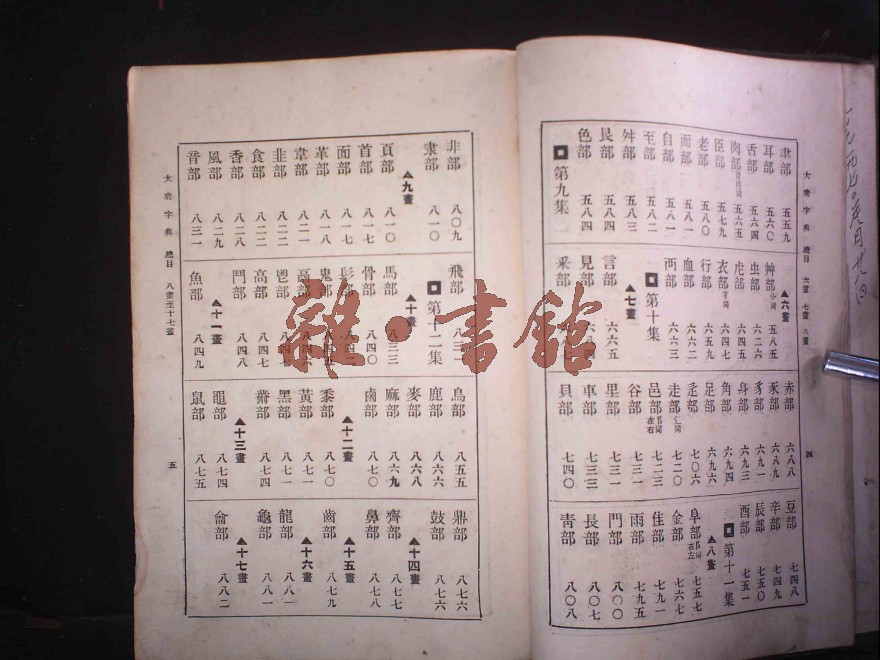 大衆字典 總目 六畫 七畫 八畫
四
聿部 五五九
耳部 五六〇
舌部 五六四
肉部 五六五
臣部 五七九
老部 五八〇
而部
自部
至部 五八二
舛部 五八三
艮部 五八四
色部 五八四
第九集
▲六畫
艸部 五八五
虫部 六二六
虍部 六四四
衣部
行部 六五九
血部 六六二
襾部 六六三
第十集
▲七畫
言部 六六五
見部
釆部
赤部 六八八
豕部 六八九
豸部 六九一
身部 六九三
角部 六九四
足部 六九六
辵部 七〇六
走部 七二〇
邑部
谷部 七三一
里部 七三一
車部 七三三
貝部 七四〇
豆部 七四八
辛部 七四九
辰部 七五〇
酉部 七五一
第十一集
▲八畫
阜部 七五七
金部 七六七
隹部 七九一
雨部 七九五
門部 八〇〇
長部 八〇七
靑部 八〇八
非部 八〇九
隶部 八一〇
▲九畫
頁部 八一〇
首部 八一七
面部 八一七
革部 八一八
韋部 八二一
韭部 八二二
食部 八二二
香部 八二八
風部 八二九
音部 八三一
飛部
第十二集
▲十畫
馬部 八三三
骨部 八四〇
髟部
鬼部
鬲部
鬯部 八四七
高部 八四七
鬥部 八四八
▲十一畫
魚部 八四九
鳥部 八五五
鹿部 八六六
麥部 八六八
麻部 八六九
鹵部 八七〇
▲十二畫
黍部 八七〇
黃部 八七一
黑部 八七一
黹部 八七四
▲十三畫
黽部 八七四
鼠部 八七五
鼎部 八七六
鼓部 八七六
▲十四畫
齊部 八七七
鼻部 八七八
▲十五畫
齒部 八七九
▲十六畫
龍部 八八一
龜部 八八一
▲十七畫
龠部 八八二
大衆字典 總目 八畫至十七畫
五
雜·書館